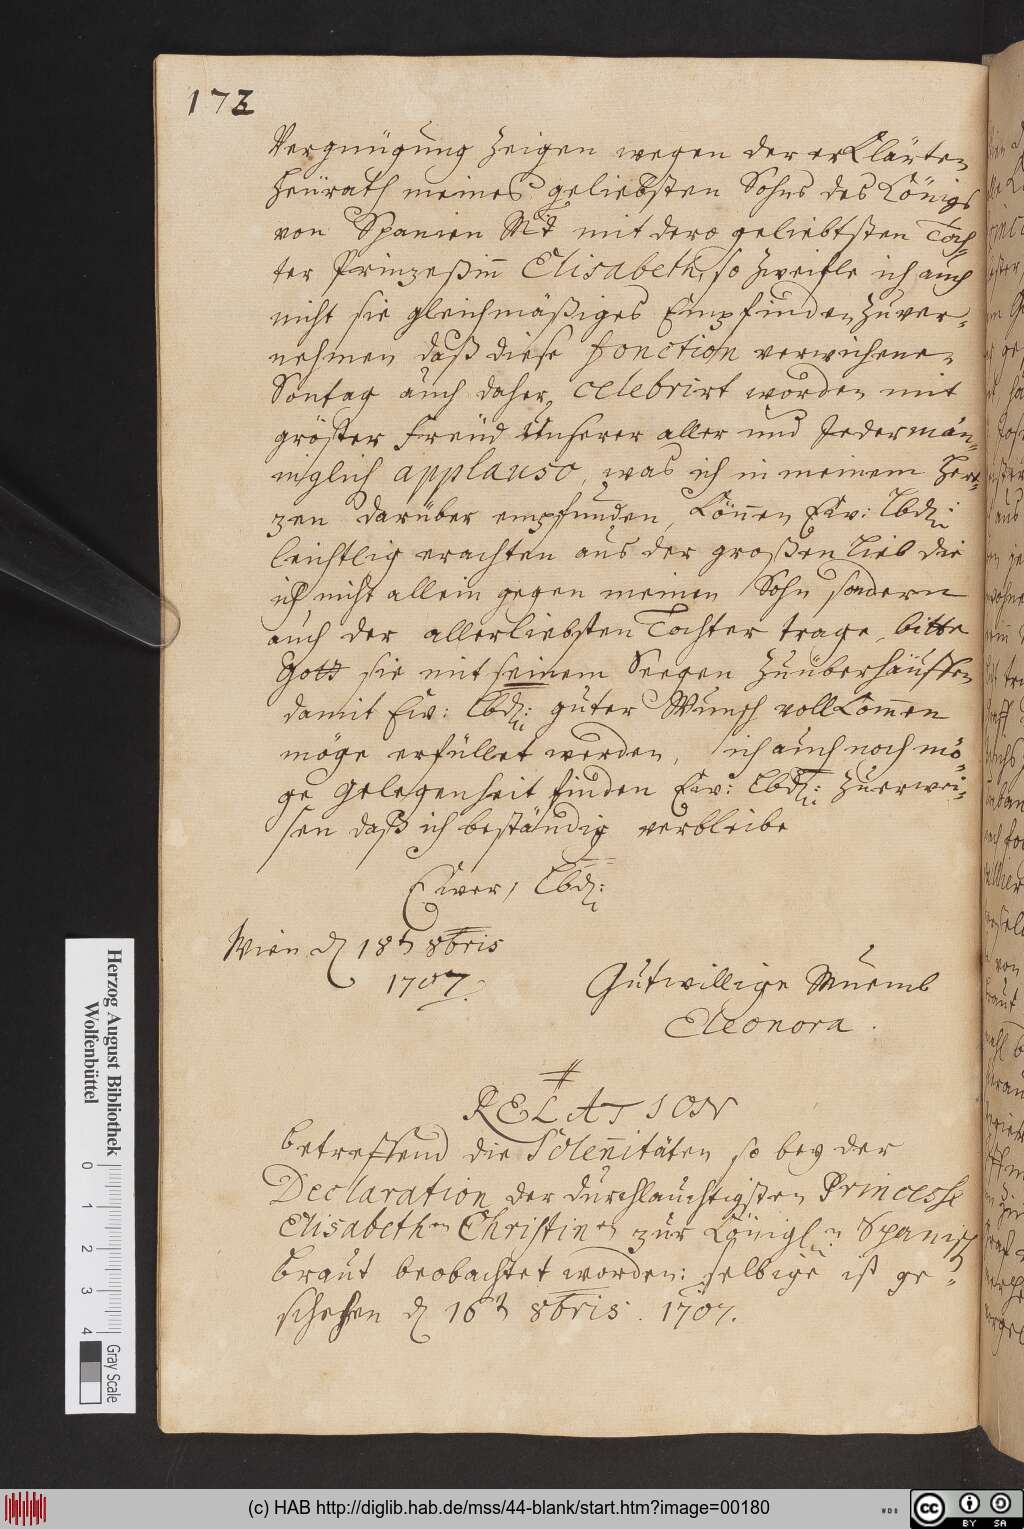 172
Vergnügung zeigen wegen der erklärten
Heürath meines geliebsten Sohns des Königs
von Spanien Mt mit dero geliebtsten Toch=
ter Prinzeßin Elisabeth, so zweifle ich auch
nicht sie gleichmäßiges Empfinden zuver=
nehmen, daß diese fonction verwichenen
Sontag auch daher celebrirt worden mit
gröster Freüd Unserer aller und Jedermän=
niglich applauso, was ich in meinem Her=
zen darüber empfunden, können Ew: Lbd:
leichtlig erachten aus der großen Lieb die
ich nicht allein gegen meinen Sohn sondern
auch der allerliebsten Tochter trage, bitte
Gott sie mit seinem Seegen zuüberhäuffen
damit Ew: Lbd: guter Wunsch vollkomen
möge erfüllet werden, ich auch noch mö=
ge gelegenheit finden Ew: Lbd: zuerwei=
sen daß ich beständig verbleibe
Ewer, Lbd:
Wien d 18t 8bris
1707.
Gutwillige Muemb
Eleonora.
RELATION
betreffend die Solennitäten so bey der
Declaration der durchlauchtigsten Princesse
Elisabethen Christinen zur Königl.n Spanisch
Braut beobachtet worden: selbige ist ge=
schehen d 16t 8bris. 1707.
Herzog August Bibliothek
Wolfenbüttel
0 1 2 3 4
Gray Scale
(c) HAB http://diglib.hab.de/mss/44-blank/start.htm?image=00180
WDB
cc BY SA